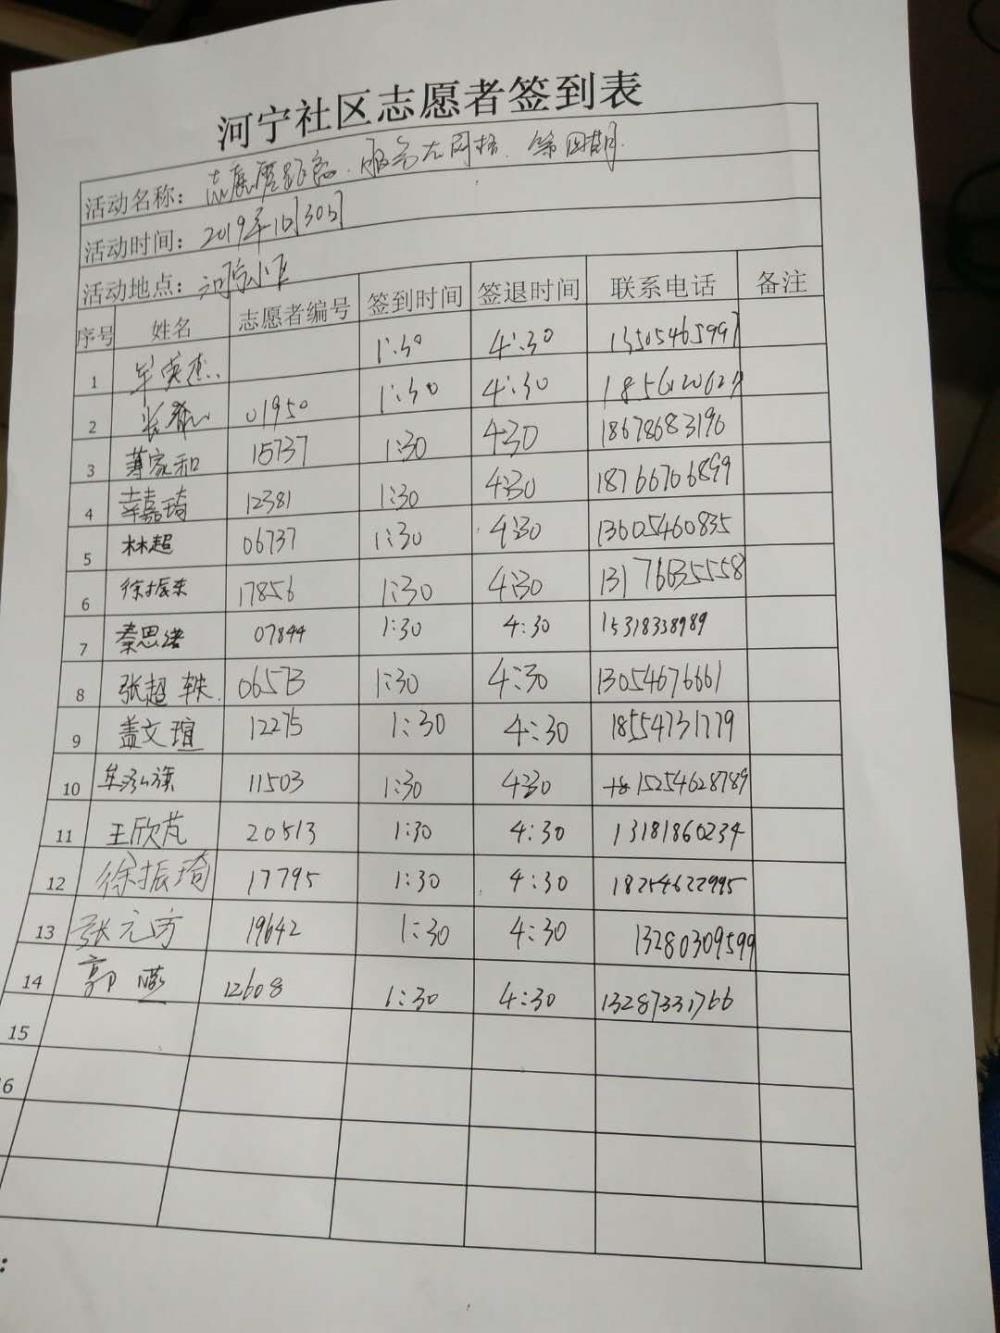 河宁社区志愿者签到表
活动名称： 服务大网格 第四期
活动时间：2019年10月30日
活动地点：河宁小区
序号 姓名 志愿者编号 签到时间 签退时间 联系电话 备注
1 牟英杰 1:30 4:30 13505465997
2 01950 1:30 4:30
3 薄家和 15737 1:30 4:30 18678683196
4 幸嘉琦 12381 1:30 4:30 18766706899
5 林超 06737 1:30 4:30 13605460835
6 徐振东 17856 1:30 4:30 13176635558
7 秦思诺 07844 1:30 4:30 15318338989
8 张超轶 06573 1:30 4:30 13054676661
9 盖文瑄 12275 1:30 4:30 18554731779
10 牟泓旗 11503 1:30 4:30 15254628789
11 王欣芃 20513 1:30 4:30 13181860234
12 徐振琦 17795 1:30 4:30 18254622995
13 张元方 19642 1:30 4:30 13280309599
14 郭 12608 1:30 4:30 13287331766
15
6
: